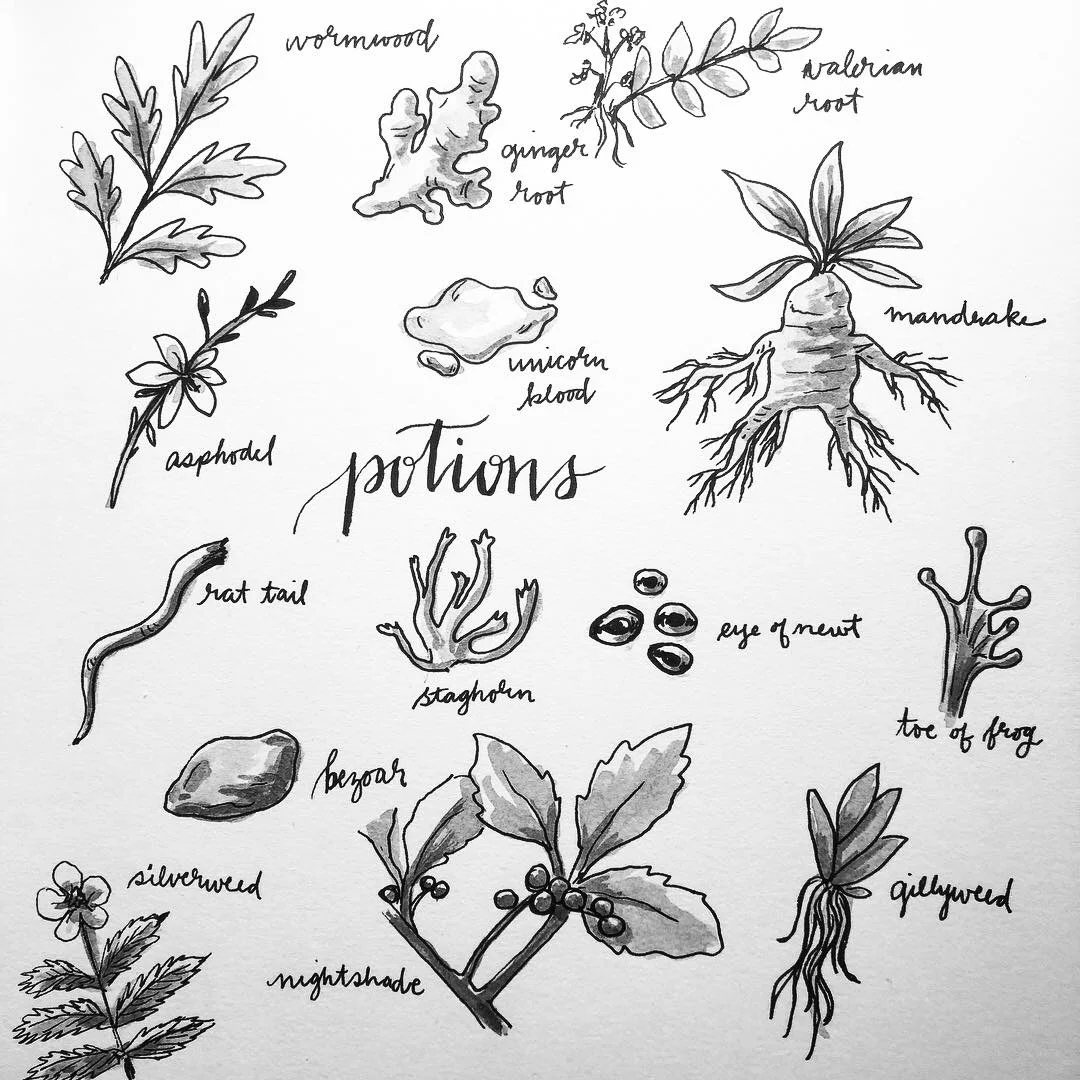 wormwood
valerian
root
ginger
root
mandrake
unicorn
blood
asphodel
potions
rat tail
staghorn
eye of newt
toe of frog
bezoar
silverweed
gillyweed
nightshade